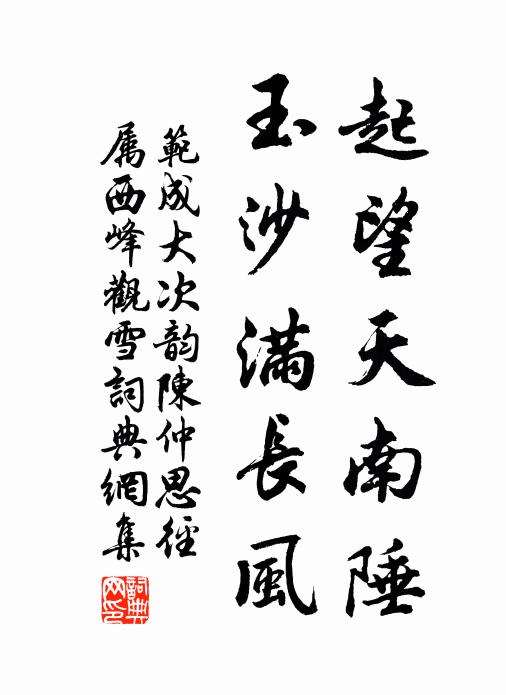 起望天南陲
玉沙滿長風
範成大次韵陳仲思徑
属西峰觀雪詞典網集
詞典网印